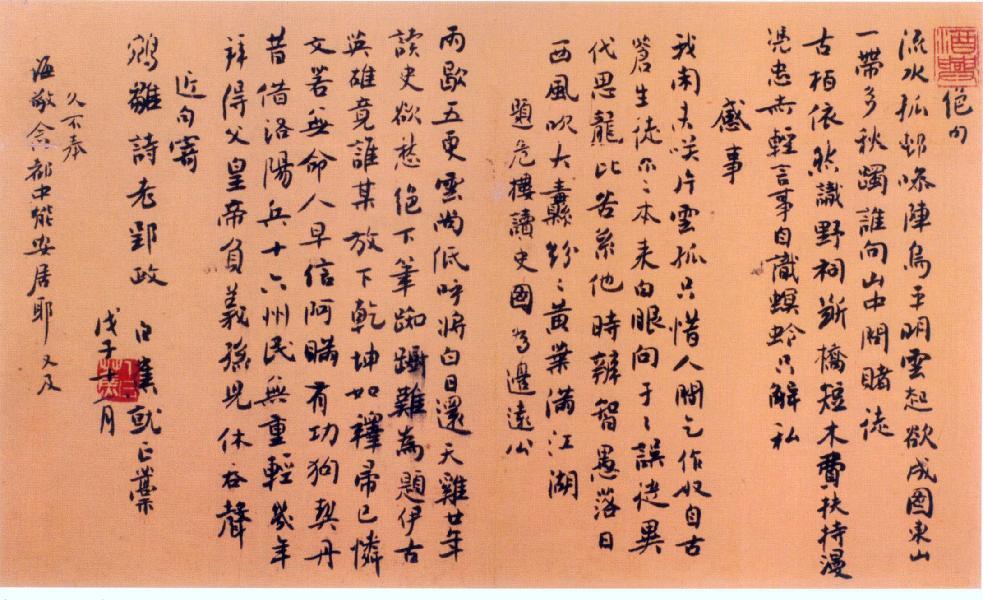 絶句
流水孤邨噪陣烏平明雲起欲成圖東山
一帶多秋躅誰向山中問賭徒
古栢依然識野祠斷橋短木費扶持漫
憑忠告輕言事自識螟蛉只解私
感事
我南夫咲片雲孤只惜人間乞作奴自古
蒼生徒尔〻本来白眼向于〻誤從異
代思龍比苦系他時辨智愚落日
西風吹大纛紛〻黄葉滿江湖
題危樓讀史圖為邊遠公
雨歇五更雲尚低呼將白日還天雞廿年
讀史欲愁絶下筆踟躕難為題伊古
英雄竟誰某放下乾坤如敝帚已憐
文若無命人早信阿瞞有功狗契丹
昔借洛陽兵十六州民無重輕幾年
拜得父皇帝負義孫兒休吞聲
近句寄
鵷雛詩老郢政
白蕉就正藁
戊子十月
久不奉
海敬念都中能安居耶又及